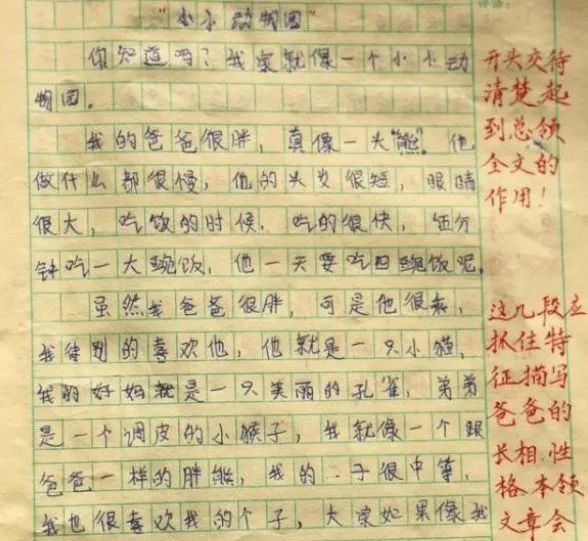 "小小动物园"
你知道吗？我家就像一个小小动
物园。
我的爸爸很胖，真像一头"熊"。他
做什么都很慢，他的头发很短，眼睛
很大，吃饭的时候，吃的很快，伍分
钟吃一大碗饭，他一天要吃四碗饭呢，
虽然我爸爸很胖，可是他很
我特别的喜欢他，他就是一只小猫，
我的好妈就是一只美丽的孔雀，弟弟
是一个调皮的小猴子，我就像一个跟
爸爸一样的胖熊，我的..子很中等，
我也很喜欢我的个子，大家如果像我
开头交待
清楚起
到总领
全文的
作用！
这几段应
抓住特
征描写
爸爸的
长相、性
格本领
文章会